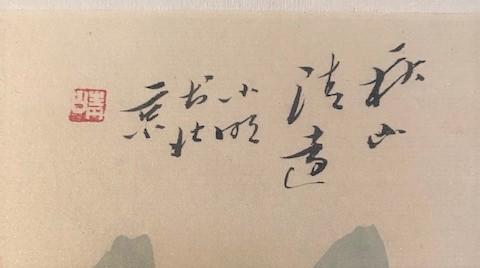 秋山
清遠
小明
北
京